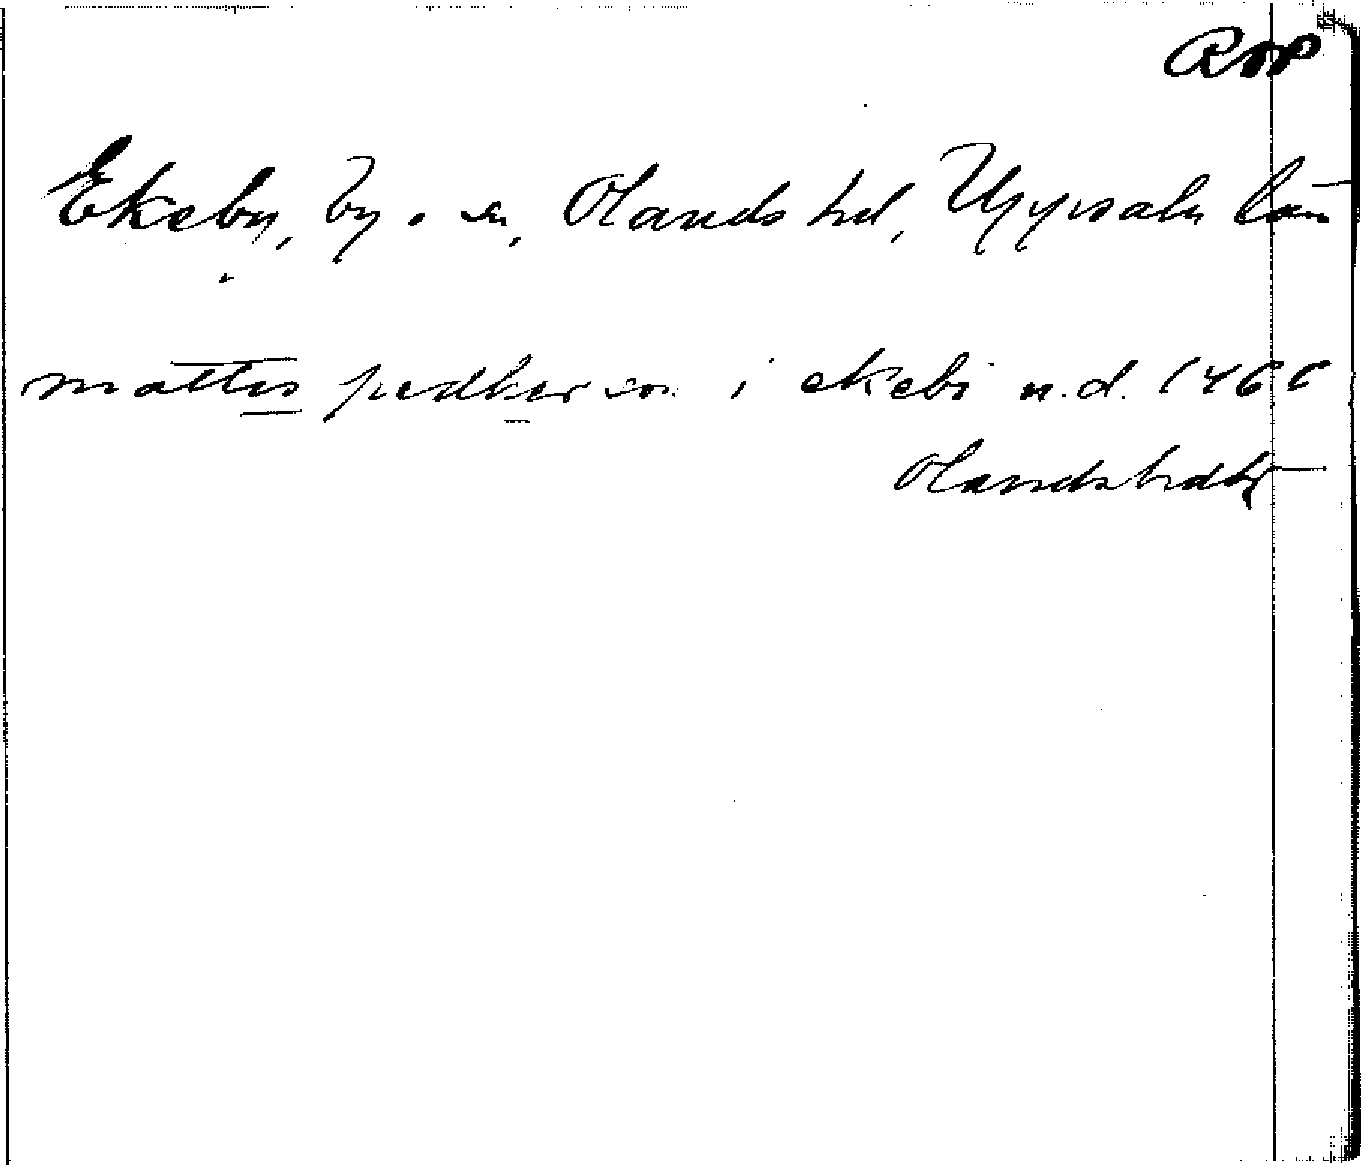 RAP
Ekeby, by o. sn, Olands hd, Uppsala län
mattis pedherson i ekebi n.d. 1466
Olandshdbr